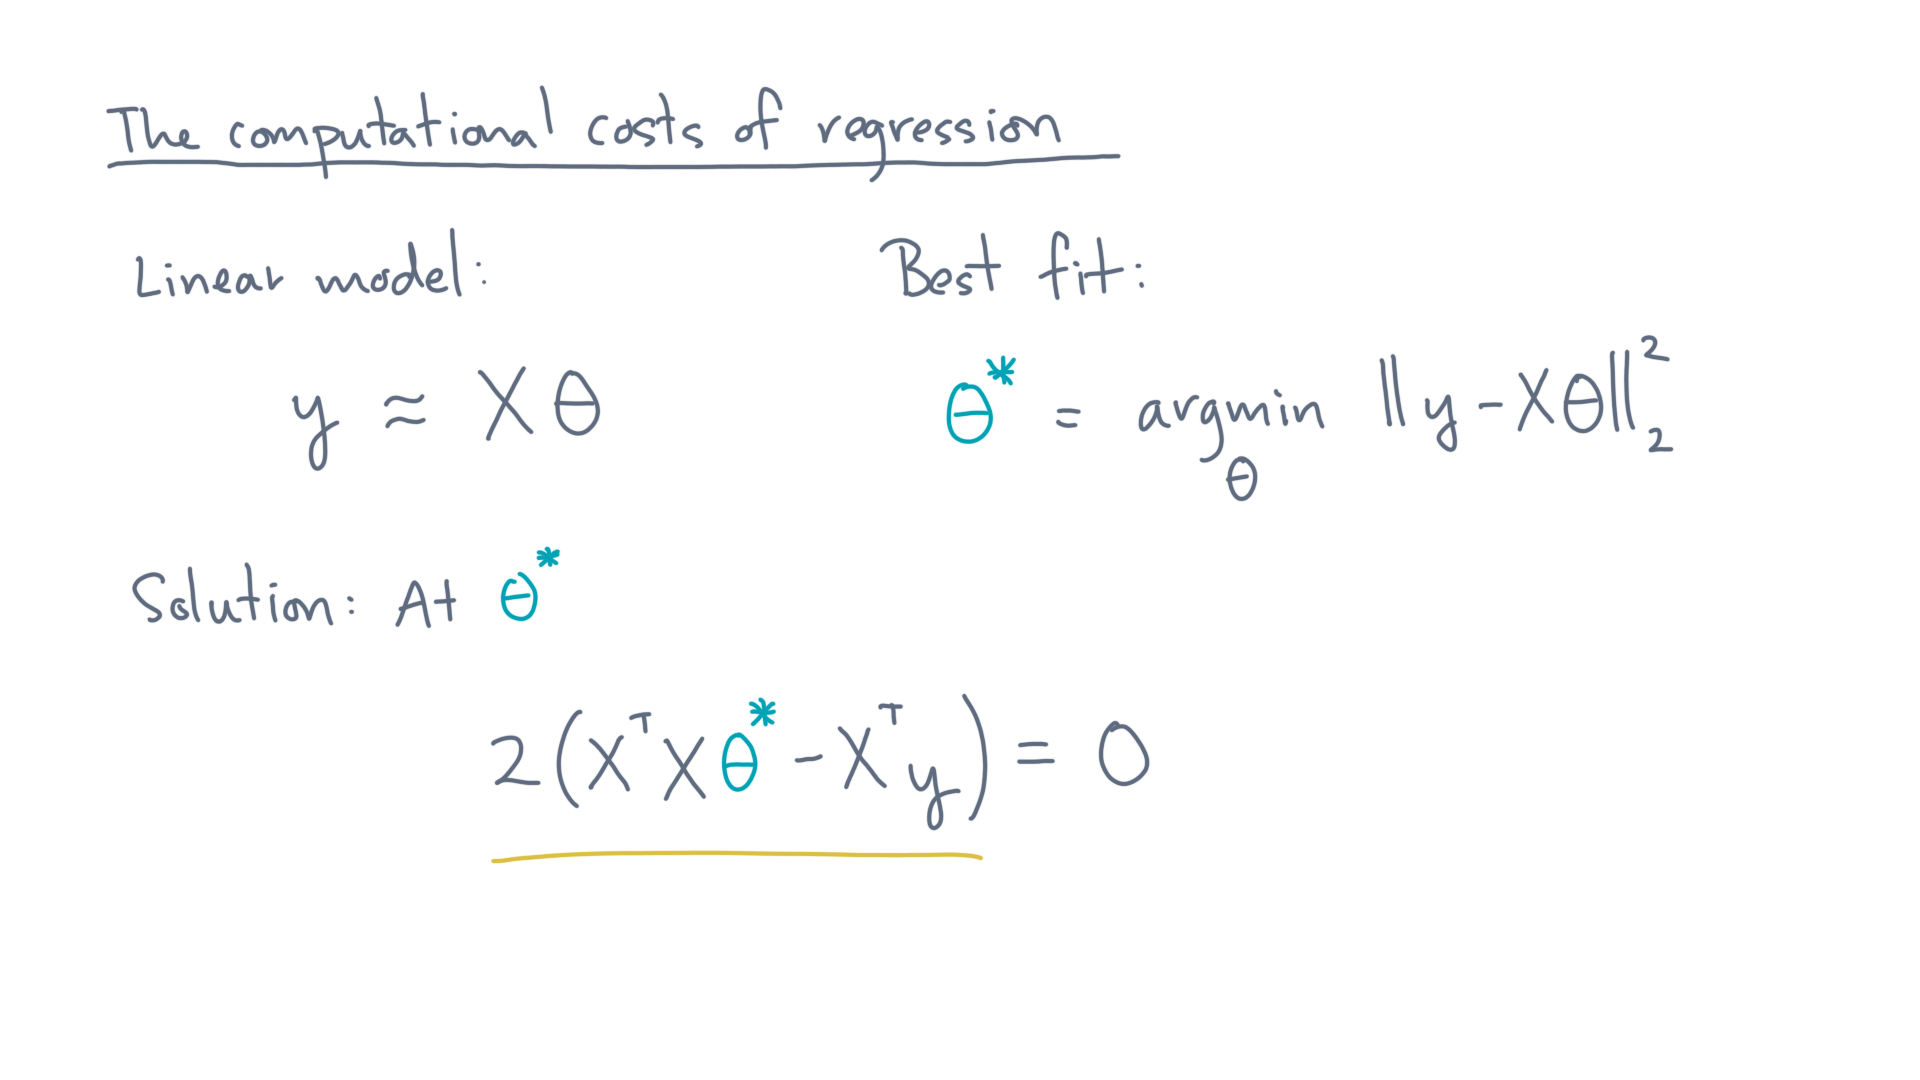 The computational costs of regression
Linear model:
y ≈ Xθ
Best fit:
θ* = argmin_θ ‖y - Xθ‖₂²
Solution: At θ*
2(XᵀXθ* - Xᵀy) = 0